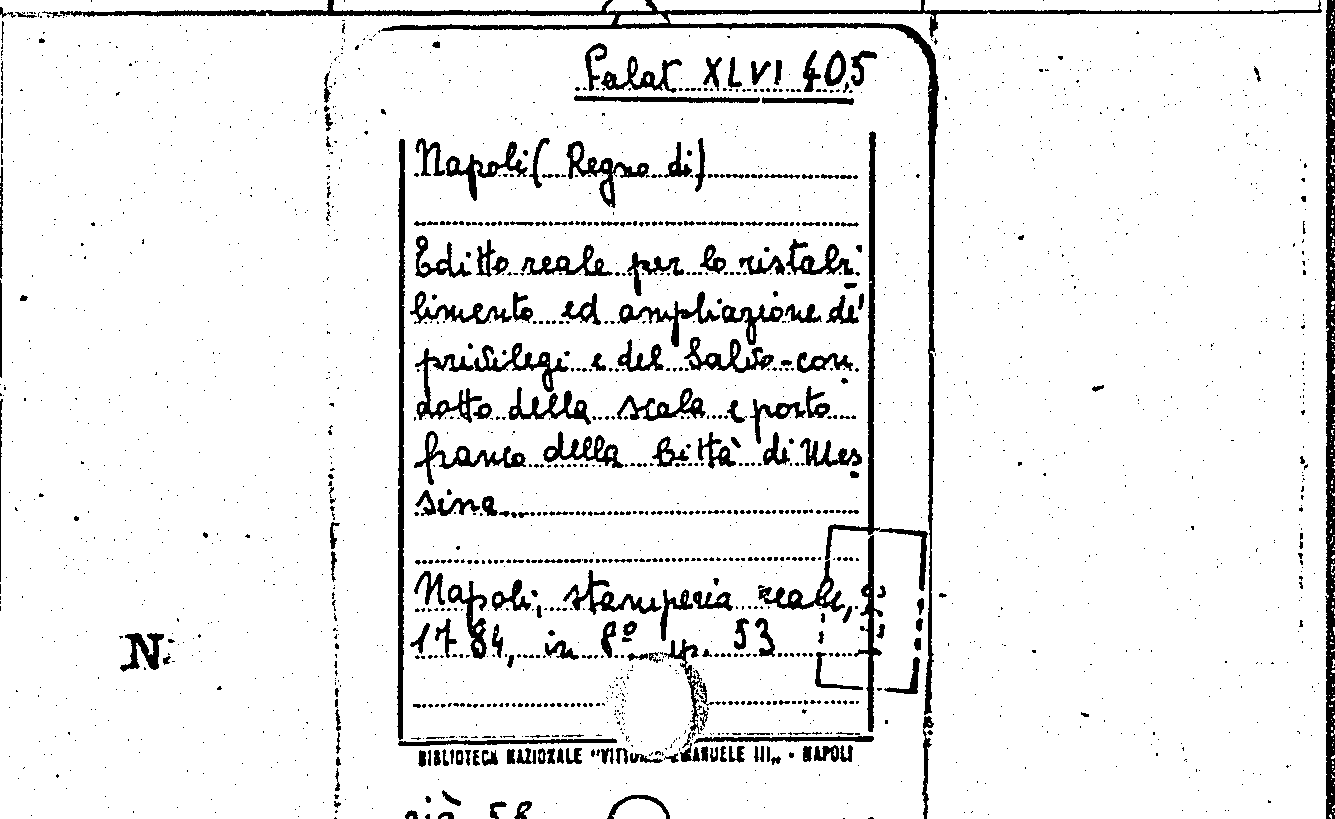 Palat XLVI 405
Napoli (Regno di)
Editto reale per lo ristabi
limento ed ampliazione de'
privilegi e del Salvo-con
dotto della scala e porto
franco della Città di Mes
sina
Napoli, stamperia reale,
1784, in 8º pp. 53
N
BIBLIOTECA NAZIONALE "VITTORIO EMANUELE III„ - NAPOLI
già 58